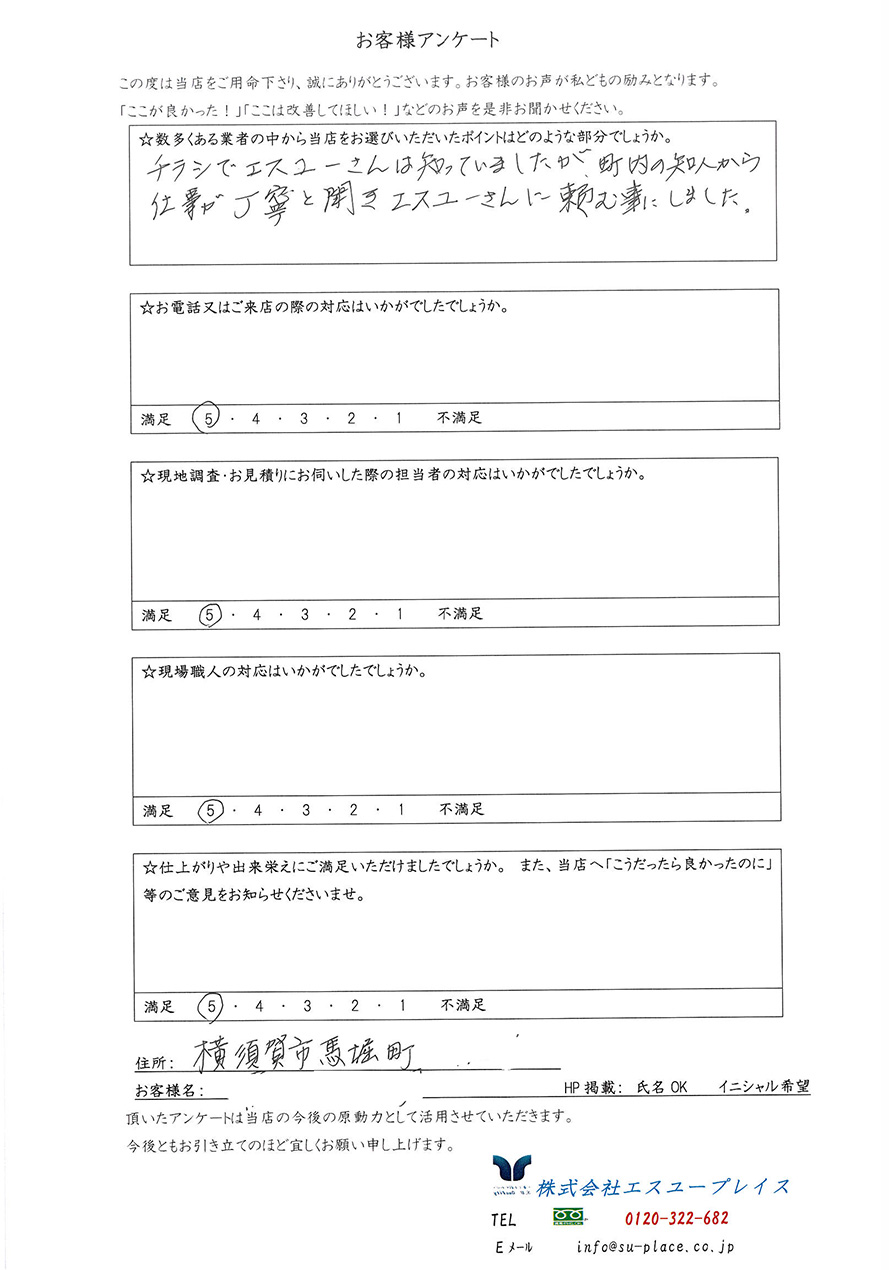 お客様アンケート
この度は当店をご用命下さり、誠にありがとうございます。お客様のお声が私どもの励みとなります。
「ここが良かった！」「ここは改善してほしい！」などのお声を是非お聞かせください。
☆数多くある業者の中から当店をお選びいただいたポイントはどのような部分でしょうか。
チラシでエスユーさんは知っていましたが、町内の知人から
仕事が丁寧と聞きエスユーさんに頼む事にしました。
☆お電話又はご来店の際の対応はいかがでしたでしょうか。
満足 5 ・ 4 ・ 3 ・ 2 ・ 1 不満足
☆現地調査・お見積りにお伺いした際の担当者の対応はいかがでしたでしょうか。
満足 5 ・ 4 ・ 3 ・ 2 ・ 1 不満足
☆現場職人の対応はいかがでしたでしょうか。
満足 5 ・ 4 ・ 3 ・ 2 ・ 1 不満足
☆仕上がりや出来栄えにご満足いただけましたでしょうか。 また、当店へ「こうだったら良かったのに」
等のご意見をお知らせくださいませ。
満足 5 ・ 4 ・ 3 ・ 2 ・ 1 不満足
住所： 横須賀市馬堀町
お客様名： HP掲載： 氏名OK イニシャル希望
頂いたアンケートは当店の今後の原動力として活用させていただきます。
今後ともお引き立てのほど宜しくお願い申し上げます。
株式会社エスユープレイス
TEL 0120-322-682
Eメール info@su-place.co.jp